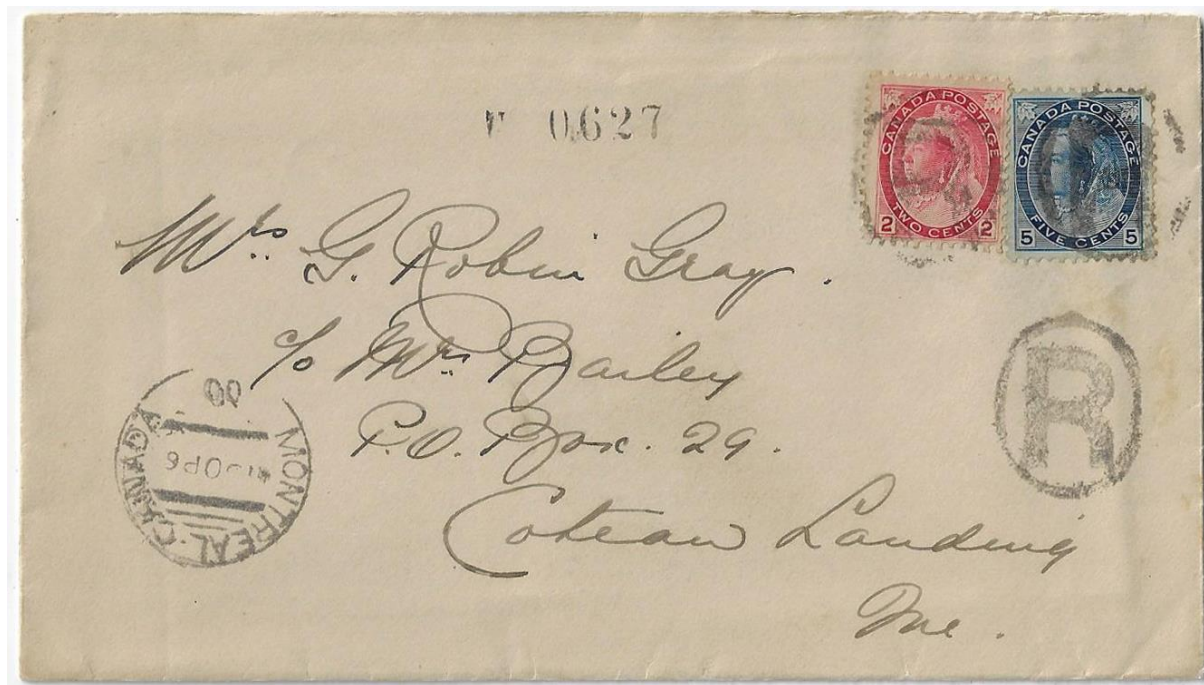 0627
CANADA POSTAGE
TWO CENTS
2 2
CANADA POSTAGE
FIVE CENTS
5 5
Mrs G. Robin Gray.
c/o Mrs Bailey
P.O. Box. 29.
Coteau Landing
R
MONTREAL·CANADA
00